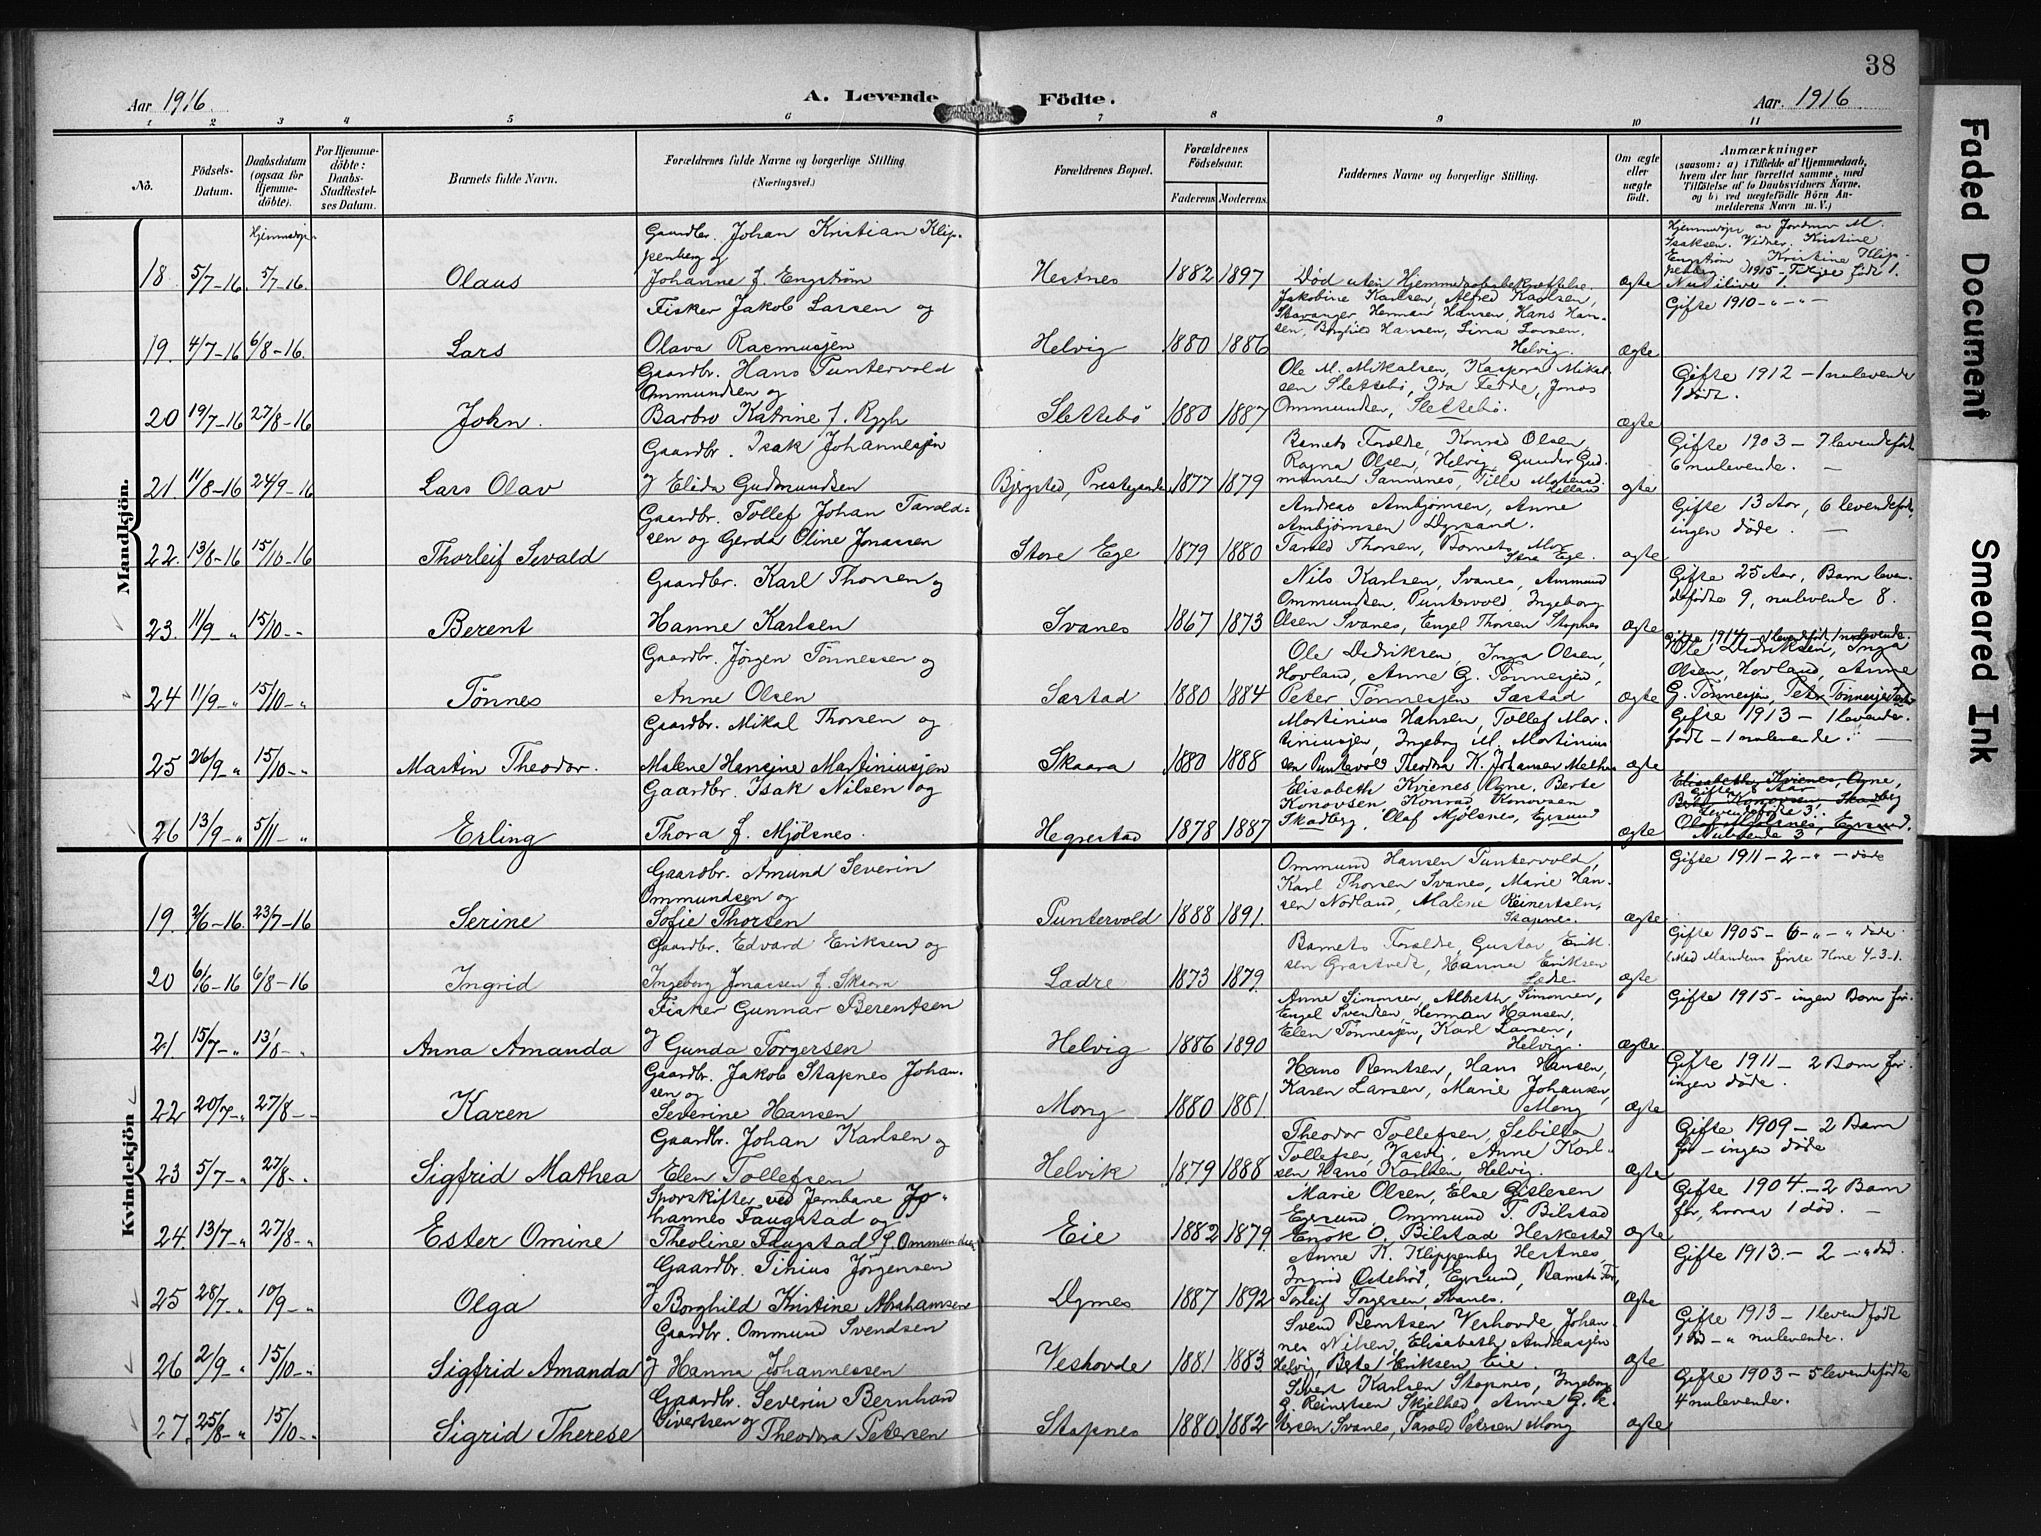 38
Aar 1916
A. Levende Födte.
Aar. 1916
1 2 3 4 5 6 7 8 9 10 11
No.
Födsels-Datum.
Daabsdatum (ogsaa for Hjemme-döbte).
For Hjemme-döbte: Daabs-Stadfæstel-ses Datum.
Barnets fulde Navn.
Forældrenes fulde Navne og borgerlige Stilling.
(Næringsvei.)
Forældrenes Bopæl.
Forældrenes Födselsaar.
Faderens. Moderens.
Faddernes Navne og borgerlige Stilling.
Om ægte eller uægte födt.
Anmærkninger
(saasom: a) i Tilfælde af Hjemmedaab, hvem der har forrettet samme, med Tilföielse af to Daabsvidners Navne, og b) ved uægtefödte Börn Anmelderens Navn m. V.)
Mandkjön.
18. 5/7-16 Hjemmedøpt 5/7-16. Olaus
Gaardbr. Johan Kristian Klip-
penberg og
Johanne f. Engstrøm
Hestnes 1882 1897
Død uten Hjemmedaabsbekræftelse.
ægte
Hjemmedøpt av Jordmor M.
Isaksen. Vidner, Kristine
Engstrøm Kristine Klip-
penberg
19. 4/7-16 6/8-16. Lars
Fisker Jakob Larsen og
Olava Rasmusjen
Helvig 1880 1886
Jakobine Karlsen, Alfred Karlsen,
Stavanger Herman Hansen, Hans Han-
sen, Borghild Hansen, Lina Larsen,
Helvig.
ægte
Gifte 1910 - " - " -
20 19/7-16 27/8-16 John.
Gaardbr. Hans Puntervold
Ommundsen og
Barbro Katrine f. Rygh
Slettebö 1880 1887
Ole M. Mikalsen, Kaspara Mikal-
sen Slettebö, Ida Fedde, Jonas
Ommundsen, Slettebö.
ægte
Gifte 1912 - 1 nulevende
1 død.
21. 11/8-16 24/9-16 Lars Olav
Gaardbr. Isak Johannesjen
og Elida Gudmundsen
Bjersted, Prestegaarden 1877 1879
Barnets Forældre, Konrad Olsen,
Ragna Olsen, Helvig, Gunder Gud-
mansen Sannesnes, Tille Mortensd.
Helland
ægte
Gifte 1903 - 7 levendefödt
6 nulevende. -
22. 13/8-16 15/10-16 Thorleif Sevald
Gaardbr. Tollef Johan Tarald-
sen og Gerda Oline Jonassen
Store Ege 1879 1880
Andreas Ambjørnsen, Anne
Ambjørnsen Dyrsand.
Tarald Thorsen, Barnets Mor
Store Ege.
ægte
Gifte 13 Aar, 6 levendefödt,
ingen døde. -
23. 11/9 - " 15/10 - " Berent
Gaardbr. Karl Thorsen og
Hanne Karlsen
Svanes 1867 1873
Nils Karlsen, Svanes, Ammund
Ommundsen, Puntervold, Ingeborg
Olsen Svanes, Engel Thorsen Stapnes
ægte
Gifte 25 Aar, Barn leven-
defødte 9, nulevende 8.
24 11/9 - " 15/10 - " Tönnes
Gaardbr. Jørgen Tönnessen og
Anne Olsen
Sæstad 1880 1884
Ole Didriksen, Inga Olsen,
Hovland, Anne G. Tönnesjen,
Peter Tönnesjen Sæstad
ægte
Gifte 1914 - 1 levendefödt, 1 nulevende.
Ole Didriksen, Inga
Olsen, Hovland, Anne
G. Tönnesjen, Peter Tönnesjen
25 26/9 " 15/10 - " Martin Theodor.
Gaardbr. Mikal Thorsen og
Malene Hansine Martiniusjen
Skaara 1880 1888
Martinius Hansen, Tollef Mar-
tiniusjen, Ingeborg M. Martinius-
sen Puntevold Theodora K. Johansen
ægte
Gifte 1913 - 1 levende-
født - 1 nulevende. -
26 13/9 - " 5/11 - " Erling
Gaardbr. Isak Nilsen og
Thora f. Mjölsnes.
Hegrestad 1878 1887
Elisabeth Kvienes, Ogne, Berte
Konovsen, Konrad Konovsen
Skadberg, Olaf Mjölsnes, Egersund
ægte
Elisabeth Kvienes, Ogne,
Gifte 8 Aar
Levendefödte 3.
Nulevende 3
Kvindekjön
19. 2/6-16. 23/7-16 Serine
Gaardbr. Amund Severin
Ommundsen og
Sofie Thorsen
Puntervold 1888 1891.
Ommund Hansen Puntervold,
Karl Thorsen Svanes, Marie Han-
sen Nodland, Malene Reinertsen,
Stapnes.
ægte
Gifte 1911 - 2 - " - døde
20 6/6-16 6/8-16 Ingrid
Gaardbr. Edvard Eriksen og
Ingeborg Jonassen f. Skaara
Ladre 1873 1879.
Barnets Forældre, Gustav Erik-
sen Grastveit, Hanna Eriksen
Ladre.
ægte
Gifte 1905 - 6 - " - " døde.
(Med Mandens første Kone 4-3-1.
21. 15/7 - " 13/8 - " Anna Amanda
Fisker Gunnar Berentsen
og Gunda Torgersen
Helvig 1886 1890
Anne Simonsen, Albreth Simonsen,
Engel Svendsen, Herman Hansen,
Elen Tönnesjen, Karl Larsen,
Helvig.
ægte
Gifte 1915 - ingen Barn før.
22 20/7 - " 27/8 - " Karen
Gaardbr. Jakob Stapnes Johan-
sen og
Severine Hansen
Mong 1880 1881.
Hans Berntsen, Hans Hansen,
Karen Larsen, Marie Johansen,
Mong
ægte
Gifte 1911 - 2 Barn før
ingen døde.
23 5/7 - " 27/8 - " Sigfrid Mathea
Gaardbr. Johan Karlsen og
Elen Tollefsen
Helvik 1879 1888
Theodor Tollefsen, Sebilla
Tollefsen, Vasvig, Anne Karl-
sen, Hans Karlsen, Helvig.
ægte
Gifte 1909 - 2 Barn
før - ingen døde
24. 13/7 - " 27/8 - " Ester Omine
Sporskifter ved Jernbane Jo-
hannes Faugstad og
Theoline Faugstad f. Ommundsen
Eie 1882 1879.
Marie Olsen, Else Gislesen
Egersund Ommund T. Bilstad
Enok O. Bilstad Herkestad
ægte
Gifte 1904 - 2 Barn
før, hvorav 1 død. -
25 28/7 - " 10/9 - " Olga
Gaardbr. Tinius Jørgensen
og Borghild Kristine Abrahamsen
Dymes 1887 1892
Anne K. Klippenberg Hestnes
Ingrid Østebrød, Egersund, Barnets Far,
Torleif Torgersen, Svanes.
ægte
Gifte 1913 - 2 - " død.
26 2/9 - " 15/10 - " Sigfrid Amanda
Gaardbr. Ommund Svendsen
og Hanna Johannessen
Veshovde 1881 1883
Svend Berntsen Veshovde Johan-
nes Nilsen, Elisabeth Andreasjen
Helvig, Berte Eriksen Eie.
ægte
Gifte 1913 - 1 levendefödt
1 død - " nulevende.
27. 25/8 - " 15/10 - " Sigrid Therese
Gaardbr. Severin Bernhard
Sivertsen og
Theodora Petersen
Stapnes 1880 1882
Sivert Karlsen Stapnes, Ingeborg
G. Reinertsen Skjelbred Anne G. K.
Svanes, Tarald Petersen Mong
ægte
Gifte 1903 - 5 levendefödte
4 nulevende.
Faded Document
Smeared Ink